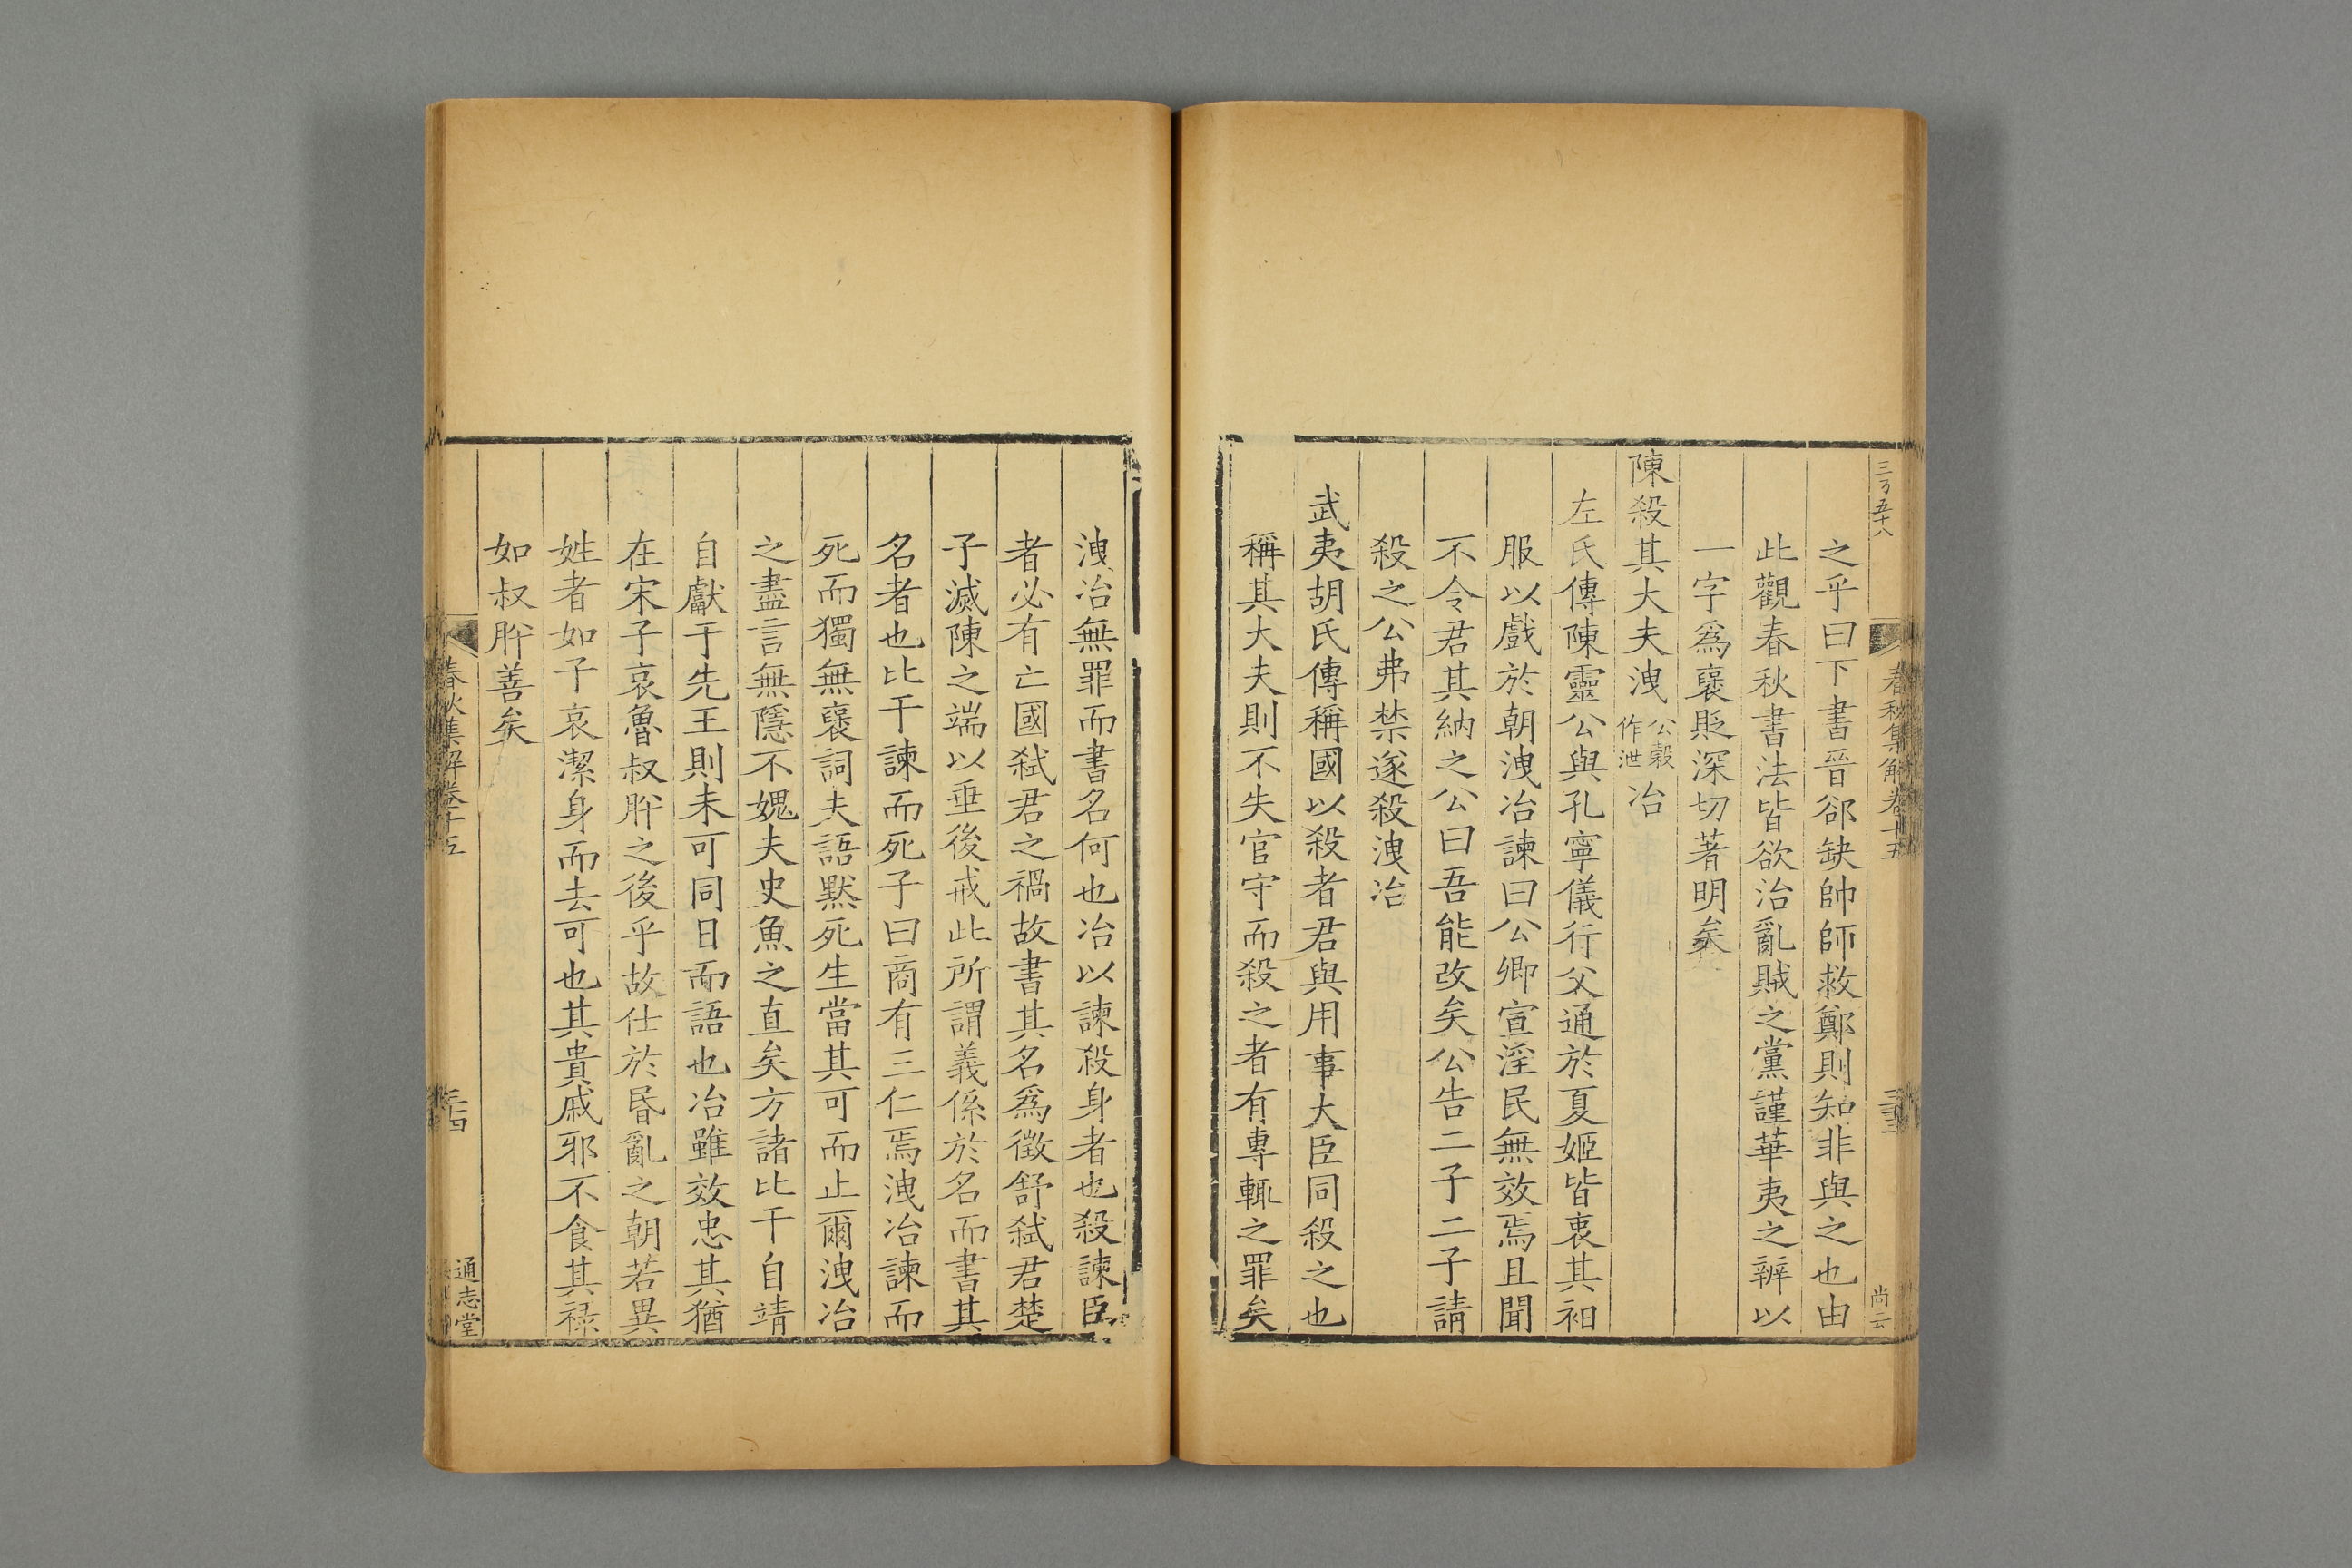 三百五十八
春秋集解卷十五
三三
尚云
之乎曰下書晉郤缺帥師救鄭則知非與之也由
此觀春秋書法皆欲治亂賊之黨謹華夷之辨以
一字爲襃貶深切著明矣
陳殺其大夫洩公穀作泄冶
左氏傳陳靈公與孔寧儀行父通於夏姬皆衷其衵
服以戲於朝洩冶諫曰公卿宣淫民無效焉且聞
不令君其納之公曰吾能改矣公告二子二子請
殺之公弗禁遂殺洩冶
武夷胡氏傳稱國以殺者君與用事大臣同殺之也
稱其大夫則不失官守而殺之者有專輒之罪矣
洩冶無罪而書名何也冶以諫殺身者也殺諫臣
者必有亡國弑君之禍故書其名爲徵舒弑君楚
子滅陳之端以垂後戒此所謂義係於名而書其
名者也比干諫而死子曰商有三仁焉洩冶諫而
死而獨無襃詞夫語默死生當其可而止爾洩冶
之盡言無隱不媿夫史魚之直矣方諸比干自靖
自獻于先王則未可同日而語也冶雖效忠其猶
在宋子哀魯叔肸之後乎故仕於昬亂之朝若異
姓者如子哀潔身而去可也其貴戚邪不食其禄
如叔肸善矣
春秋集解卷十五
三四
通志堂